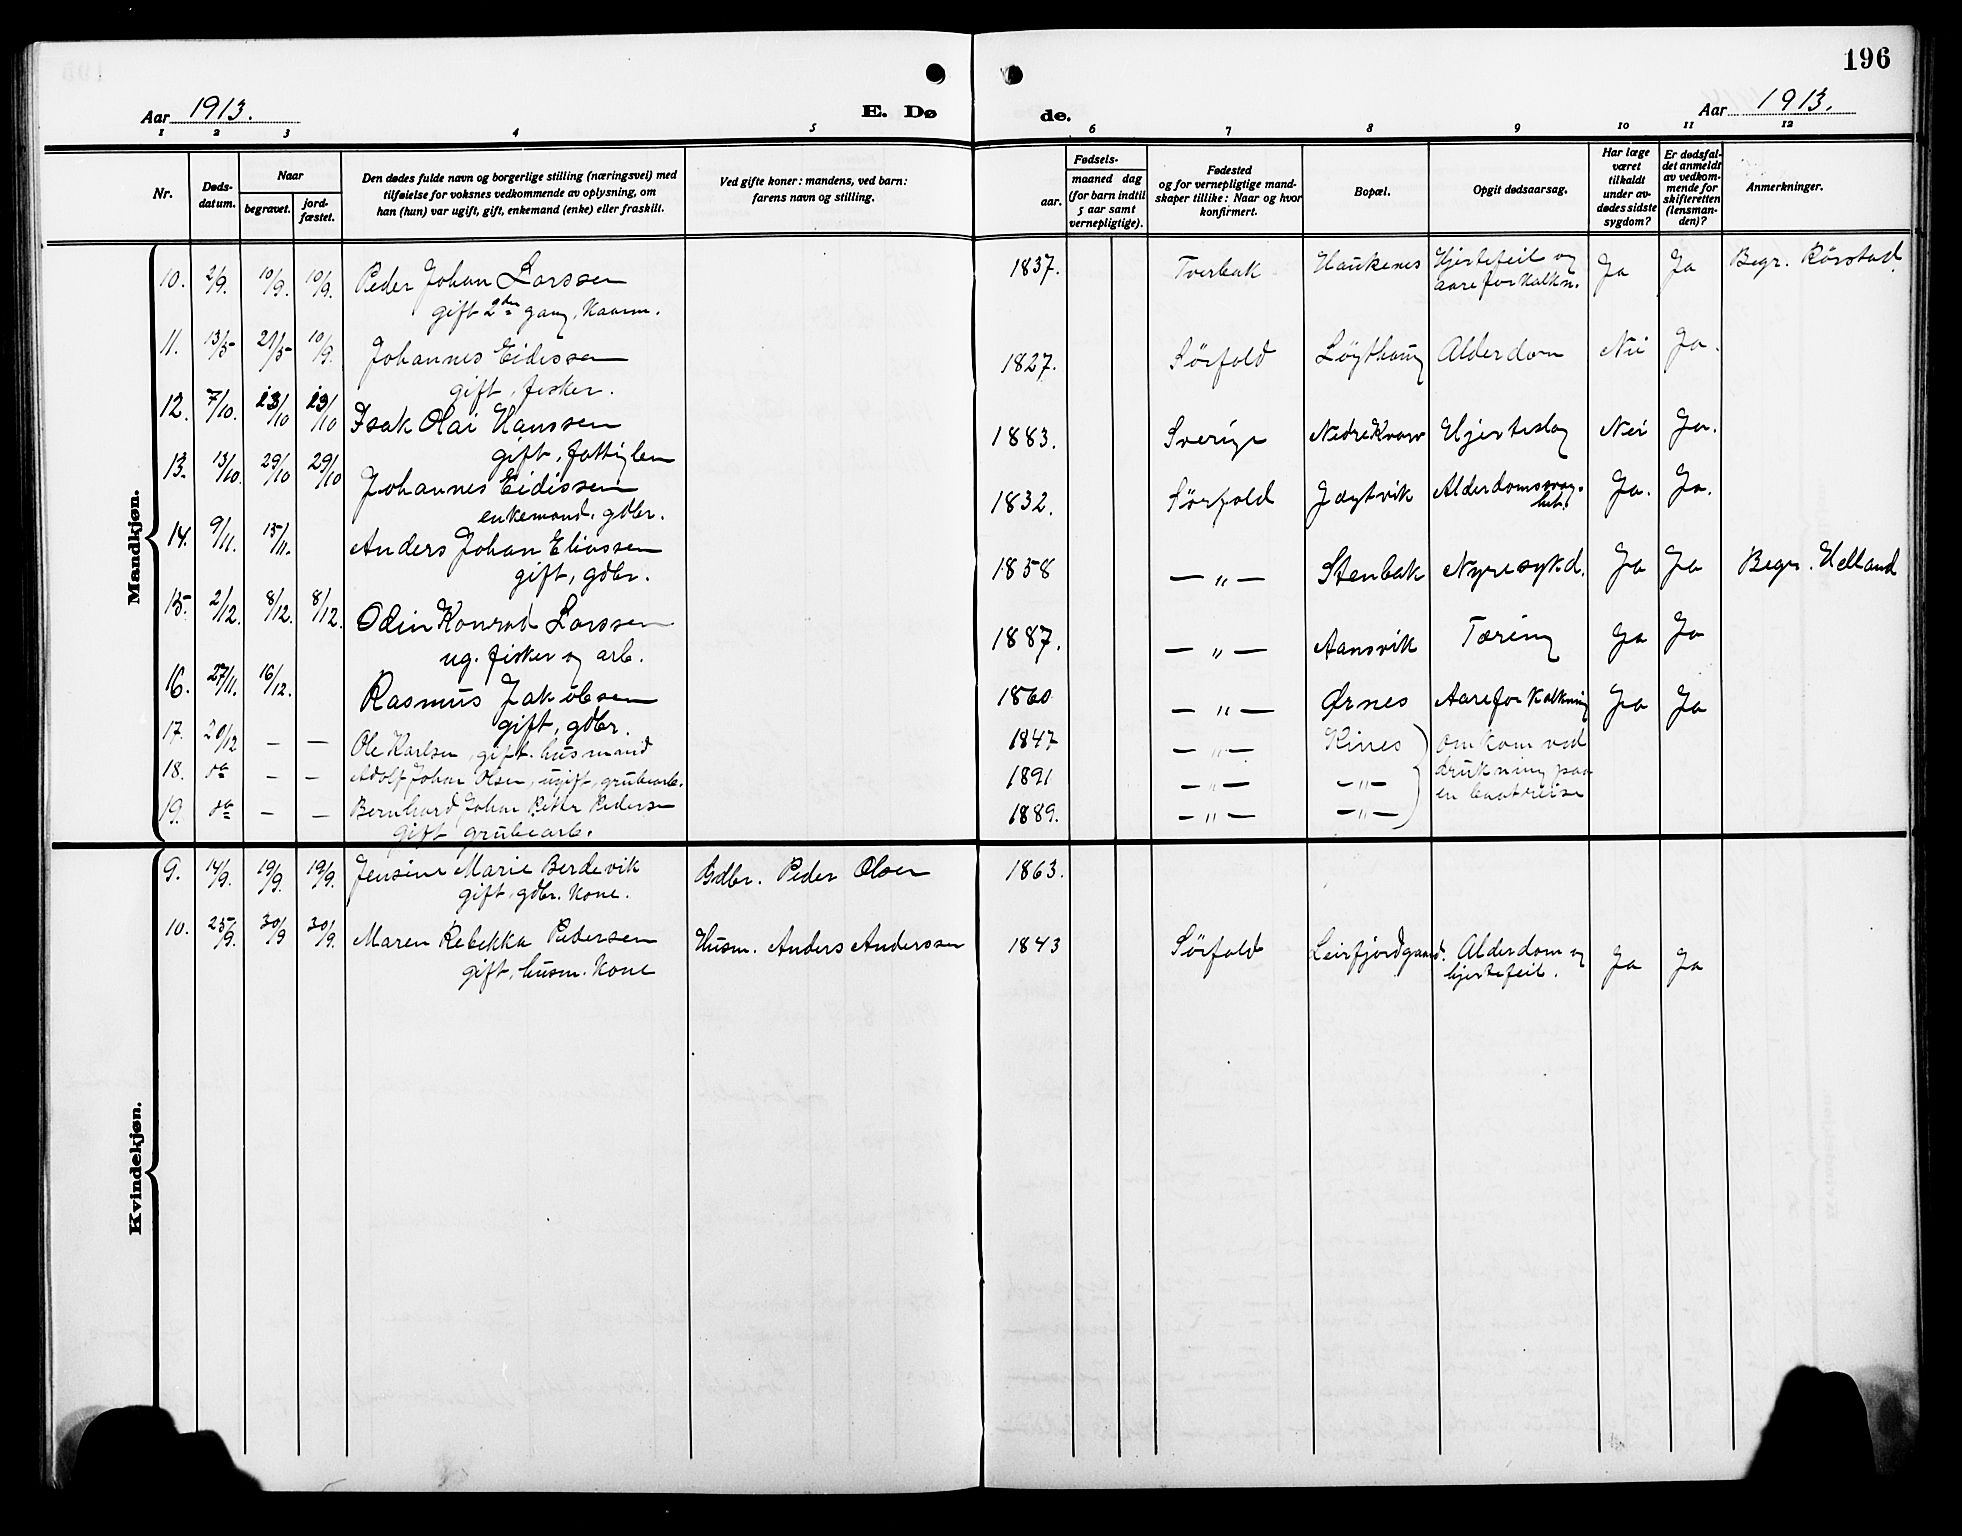 196
Aar 1913.
E. Dø
de.
Aar 1913.
1 2 3 4 5 6 7 8 9 10 11 12
Nr.
Døds-
datum.
Naar
begravet.
jord-
fæstet.
Den dødes fulde navn og borgerlige stilling (næringsvei) med
tilføielse for voksnes vedkommende av oplysning, om
han (hun) var ugift, gift, enkemand (enke) eller fraskilt.
Ved gifte koner: mandens, ved barn:
farens navn og stilling.
Fødsels-
aar.
maaned dag
(for barn indtil
5 aar samt
vernepligtige).
Fødested
og for vernepligtige mand-
skaper tillike: Naar og hvor
konfirmert.
Bopæl.
Opgit dødsaarsag.
Har læge
været
tilkaldt
under av-
dødes sidste
sygdom?
Er dødsfal-
det anmeldt
av vedkom-
mende for
skifteretten
(lensman-
den)?
Anmerkninger.
Mandkjøn.
10. 2/9. 10/9. 10/9. Peder Johan Larssen 1837. Tverbak Haukenes Hjertefeil og Ja Ja Begr. Rørstad.
gift 2den gang, kaarm. aareforkalkn.
11. 13/5 21/5 10/9. Johannes Eidissen 1827. Sørfold Løgthaug Alderdom Nei Ja.
gift, fisker.
12. 7/10. 23/10 23/10 Isak Olai Hanssen 1883. Sverige Nedre Kvarv Hjerteslag Nei Ja.
gift, fattiglem
13. 13/10. 29/10 29/10 Johannes Eidissen 1832. Sørfold Jægtvik Alderdomssvag- Ja. Ja.
enkemand, gdbr. het.
14. 9/11. 15/11. Anders Johan Eliassen 1858 — „ — Stenbak Nyresykd. Ja Ja Begr. Helland
gift, gdbr.
15. 2/12. 8/12. 8/12. Odin Konrad Larssen 1887. — „ — Aansvik Tæring Ja Ja
ug. fisker og arb.
16. 27/11. 16/12. Rasmus Jakobsen 1860 — „ — Ørnes Aareforkalkning Ja Ja
gift, gdbr.
17. 20/12 — — Ole Karlsen, gift, husmand 1847 — „ — Kines omkom ved
18. do — — Adolf Johan Olsen, ugift, grubearb. 1891 — „ — — „ — drukning paa
19. do — — Bernhard Johan Peter Pedersen 1889. — „ — — „ — en baatreise
gift grubearb.
Kvindekjøn.
9. 14/9. 19/9. 19/9. Jensine Marie Berdevik Gdbr. Peder Olsen 1863.
gift, gdbr. kone.
10. 25/9. 30/9 30/9. Maren Rebekka Pedersen Husm. Anders Anderssen 1843 Sørfold Leirfjordgaard. Alderdom og Ja Ja
gift, husm. kone hjertefeil.